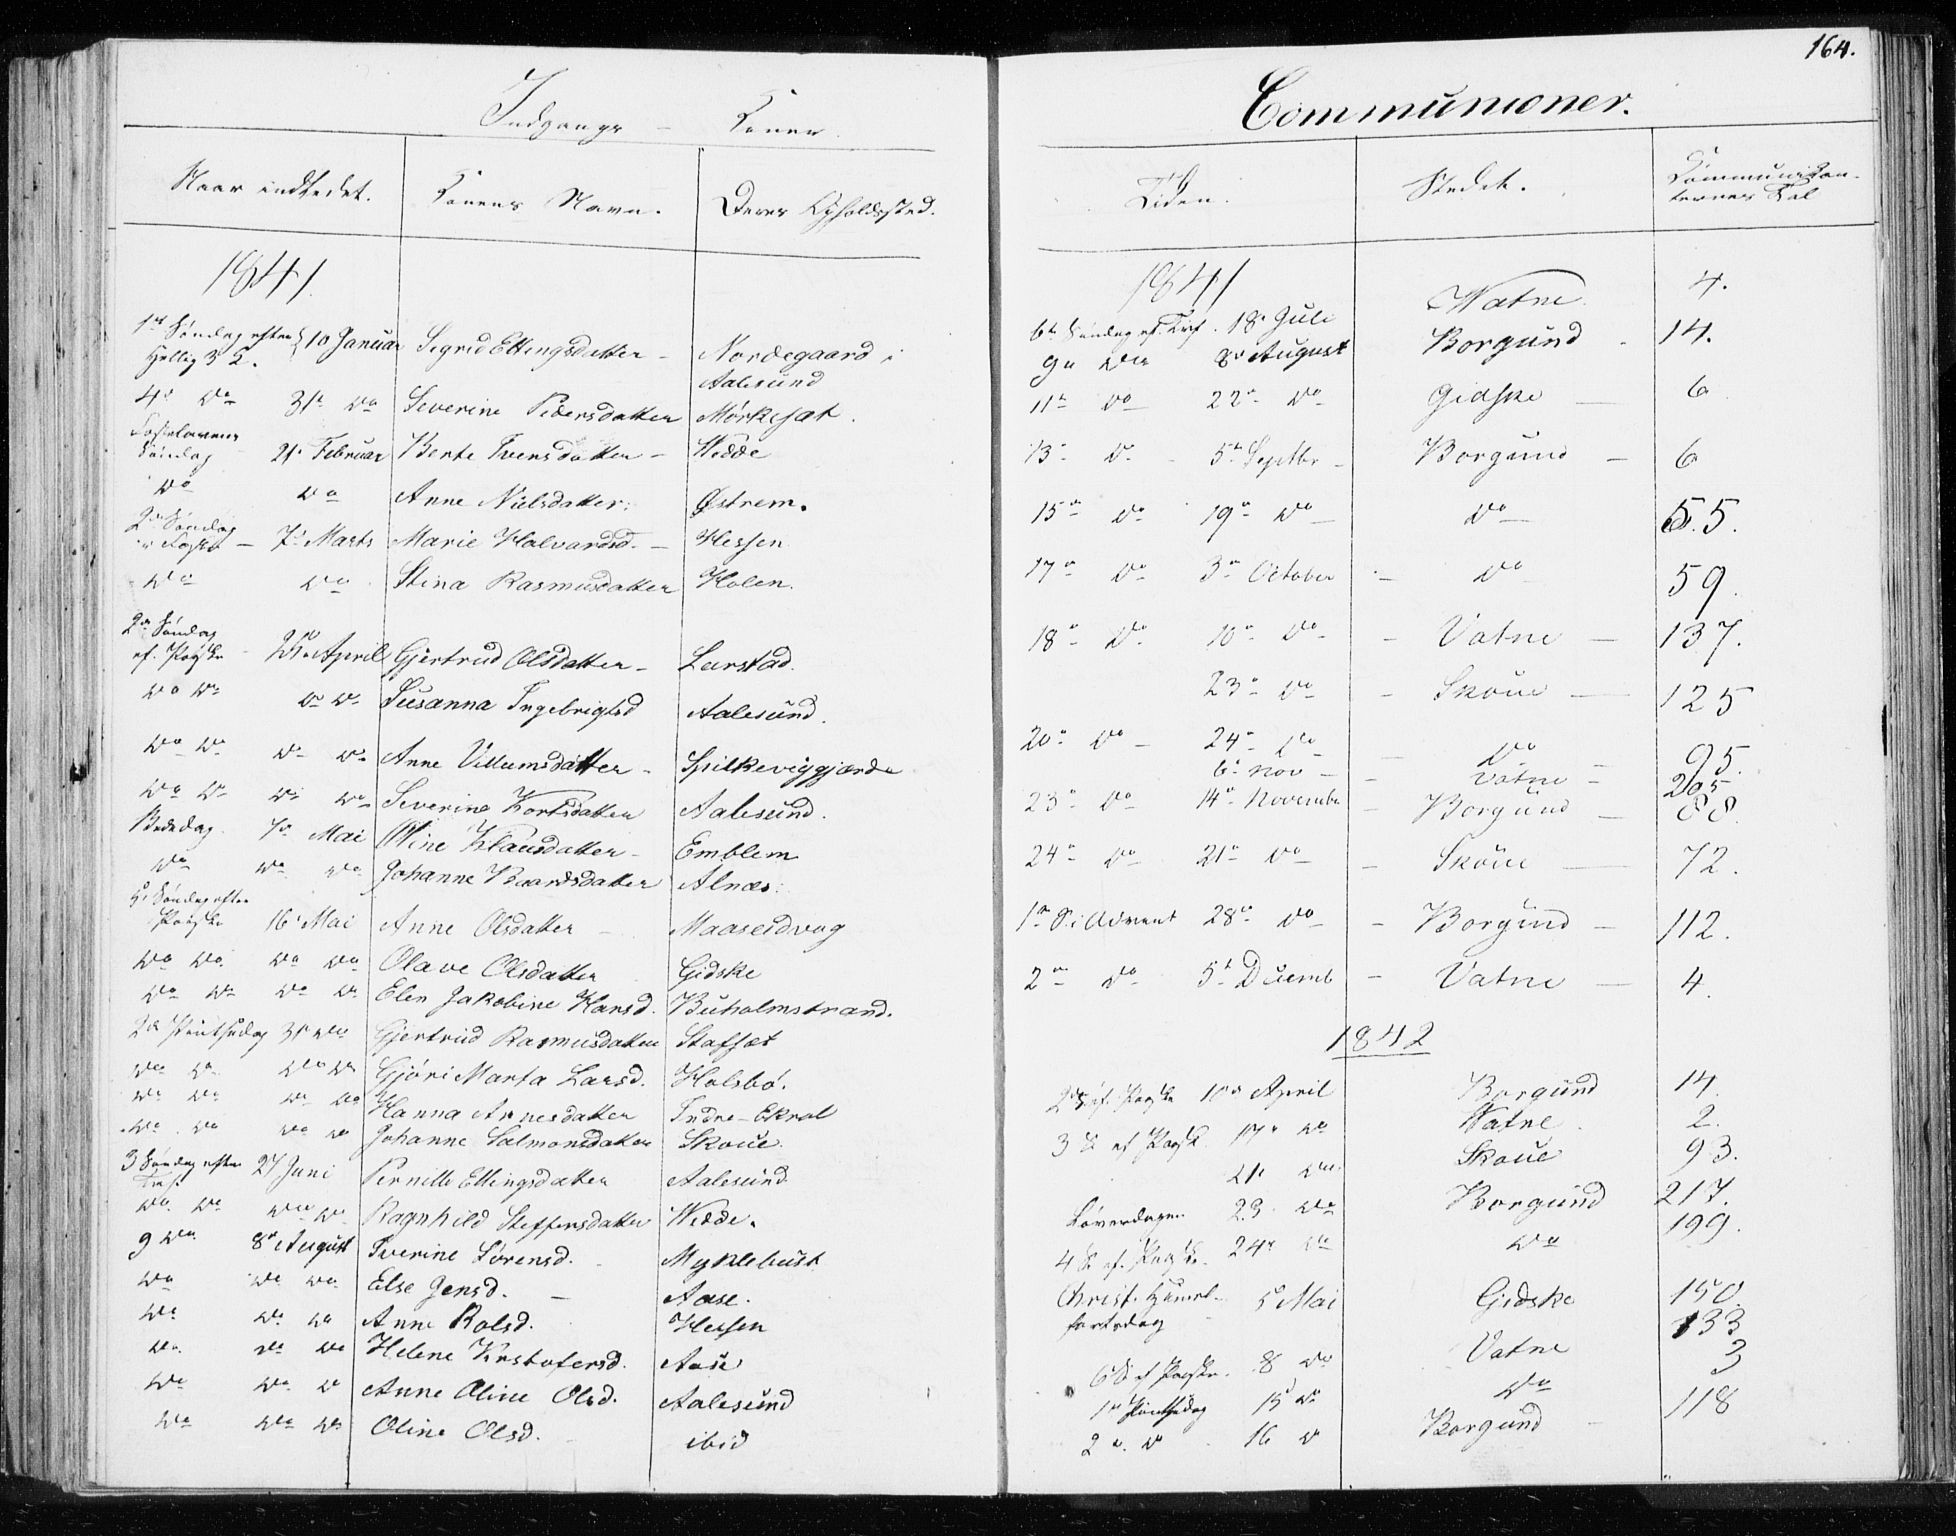 Indgangs - Koner.
Naar indledet. Konens Navn. Deres Opholdssted.
1841
1ste Søndag efter
Hellig 3 K. 10 Januar Sigrid Ellingsdatter - Nordegaard i
Aalesund
4de do 31te do Severine Pedersdatter Mørkesæt.
Fastelavens
Søndag - 21de Februar Berte Iversdatter - Wedde
do do Anne Nielsdatter. Østrem.
2den Søndag
i Faste - 7de Marts Marie Halvardsd. - Hessen
do do Stina Rasmusdatter Holen.
2den Søndag
ef. Paaske - April Gjertrud Olsdatter - Larstad.
do do do do Susanna Ingebrigtsd Aalesund.
do do do do Anne Villumsdatter - Spilkeviggjærde
do do do do Severine Kortsdatter Aalesund.
Bededag. 7de Mai Oline Klausdatter - Emblem
do do do Johanne Baardsdatter Alnæs.
5te Søndag efter
Paaske 16de Mai Anne Olsdatter - Maaseidvag
do do do do Olave Olsdatter Gidske
do do do do Elen Jakobine Hansd. Buholmstrand.
2den Pintsedag 31te do Gjertrud Rasmusdatter Stafsæt
do do do do Gjøri Marta Larsd. Holsbø.
do do do do Hanna Arnesdatter Indre-Ekrol
do do do do Johanne Salmonsdatter Skoue.
3 Søndag efter
Tref 27 Juni Pernille Ellingsdatter Aalesund.
do do do do Ragnhild Steffensdatter Wedde.
9 do 8de August Iverine Sørensd. Myklebust
do do do Else Jensd. - Aase.
do do do Anne Rolsd. Hessen
do do do Helene Kristofersd. Aase
do do do Anne Oline Olsd. Aalesund
do do do Oline Olsd. ibid
164.
Communioner.
Tiden. Stedet. Communikan-
ternes Tal
1841
6te Søndag ef. Tref. 18de Juli Watne. 4.
9de do 8de August Borgund 14.
11te do 22de do Gidske - 6
13de do 5te Septbr - Borgund - 6
15de do 19de do do 55.
17de do 3de October - do 59.
18de do 10de do - Vatne - 137.
23de do - Skoue - 125
20de do - 24de do - do 95.
6te Nov - - Vatne - 205
23de do 14de November - Borgund - 88.
24de do 21de do - Skoue - 72.
1ste S. i Advent 28de do - Borgund - 112.
2den do 5te Decemb - Vatne - 4.
1842
2den S. ef. Paaske 10de April Borgund 14.
3 S. ef Paask. 17de do Watne. 2.
21de do Skoue 93.
Løverdagen 23. do Borgund 217.
4 S. ef. Paaske. 24de do do 199.
Christ. Himmel-
fartsdag 5te Mai Gidske 150.
6 S. ef Paaske. 8 do Vatne 3
1ste Pintsedag 15 do do
2 do. do 16 do Borgund - 118